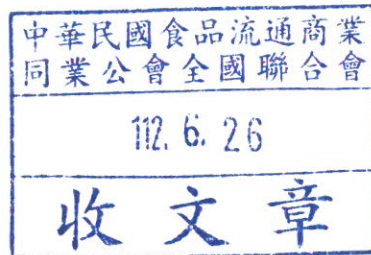 中華民國食品流通商業
同業公會全國聯合會
112. 6. 26
收文章